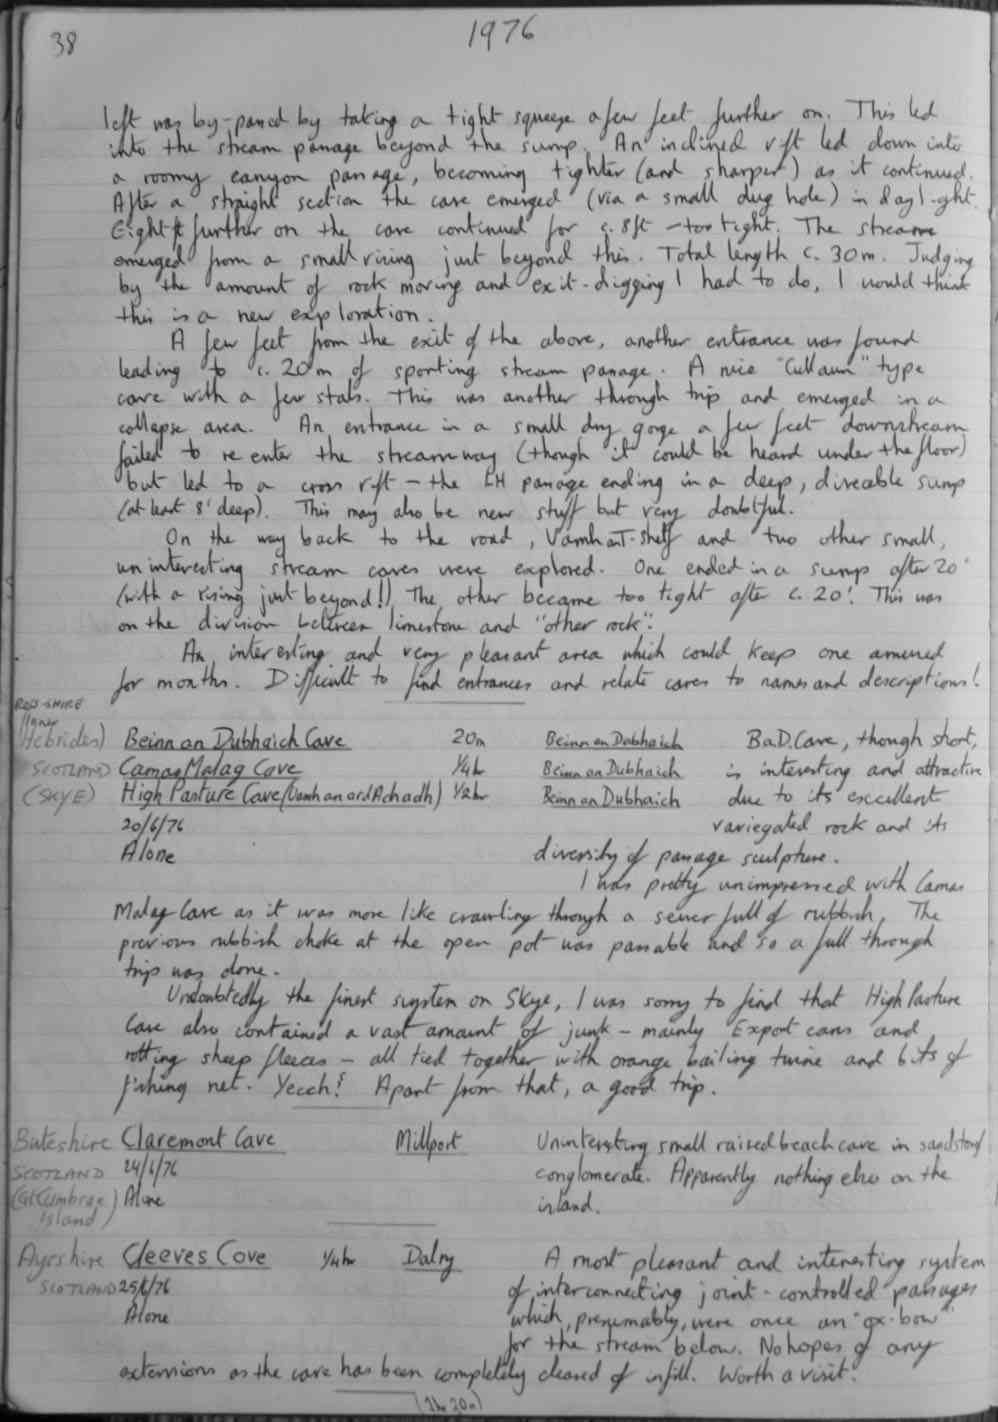 38
1976
left was by-passed by taking a tight squeeze a few feet further on. This led
into the stream passage beyond the sump. An inclined rift led down into
a roomy canyon passage, becoming tighter (and sharper) as it continued.
After a straight section the cave emerged (via a small dug hole) in daylight.
Eight ft further on the cave continued for c. 8ft - too tight. The stream
emerged from a small rising just beyond this. Total length c. 30m. Judging
by the amount of rock moving and exit-digging I had to do, I would think
this is a new exploration.
A few feet from the exit of the above, another entrance was found
leading to c. 20m of sporting stream passage. A nice "Cullaun" type
cave with a few stals. This was another through trip and emerged in a
collapse area. An entrance in a small dry gorge a few feet downstream
failed to re enter the streamway (though it could be heard under the floor)
but led to a cross rift - the LH passage ending in a deep, diveable sump
(at least 8' deep). This may also be new stuff but very doubtful.
On the way back to the road, and two other small,
uninteresting stream caves were explored. One ended in a sump after 20'
(with a rising just beyond!!) The other became too tight after c. 20'. This was
on the division between limestone and "other rock".
An interesting and very pleasant area which could keep one amused
for months. Difficult to find entrances and relate caves to names and descriptions!
ROSS-SHIRE
(Inner
Hebrides)
SCOTLAND
(SKYE)
Beinn an Dubhaich Cave 20m Beinn an Dubhaich BaD. Cave, though short,
Camas Malag Cave ¼hr Beinn an Dubhaich is interesting and attractive
High Pasture Cave (Uamh an ard Achadh) ½hr Beinn an Dubhaich due to its excellent
20/6/76 variegated rock and its
Alone diversity of passage sculpture.
I was pretty unimpressed with Camas
Malag Cave as it was more like crawling through a sewer full of rubbish. The
previous rubbish choke at the open pot was passable and so a full through
trip was done.
Undoubtedly the finest system on Skye, I was sorry to find that High Pasture
Cave also contained a vast amount of junk - mainly Export cans and
rotting sheep fleeces - all tied together with orange bailing twine and bits of
fishing net. Yecch! Apart from that, a good trip.
Buteshire Claremont Cave Millport Uninteresting small raised beach cave in sandstone
SCOTLAND 24/6/76 conglomerate. Apparently nothing else on the
(Gt Cumbrae Island) Alone island.
Ayrshire Cleeves Cove ¼hr Dalry A most pleasant and interesting system
SCOTLAND 25/6/76 of interconnecting joint-controlled passages
Alone which, presumably, were once an "ox-bow"
for the stream below. No hopes of any
extensions as the cave has been completely cleared of infill. Worth a visit.